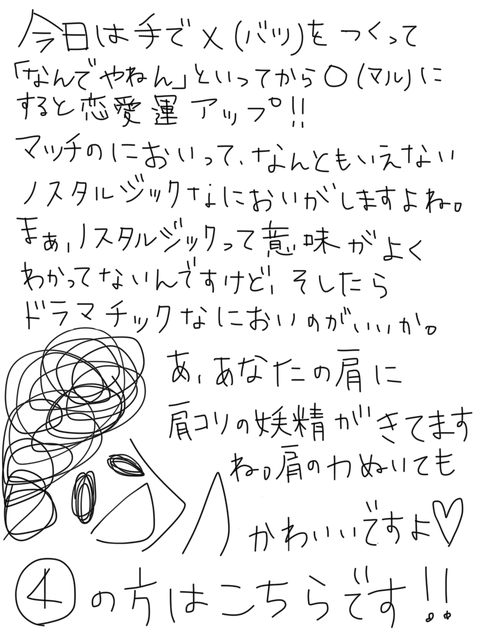 今日は手で×(バツ)をつくって
「なんでやねん」といってから○(マル)に
すると恋愛運アップ!!
マッチのにおいって、なんともいえない
ノスタルジックなにおいがしますよね。
まぁ、ノスタルジックって意味がよく
わかってないんですけど、そしたら
ドラマチックなにおいのがいいか。
あ、あなたの肩に
肩コリの妖精がきてます
ね。肩の力ぬいても
かわいいですよ♡
④の方はこちらです!!